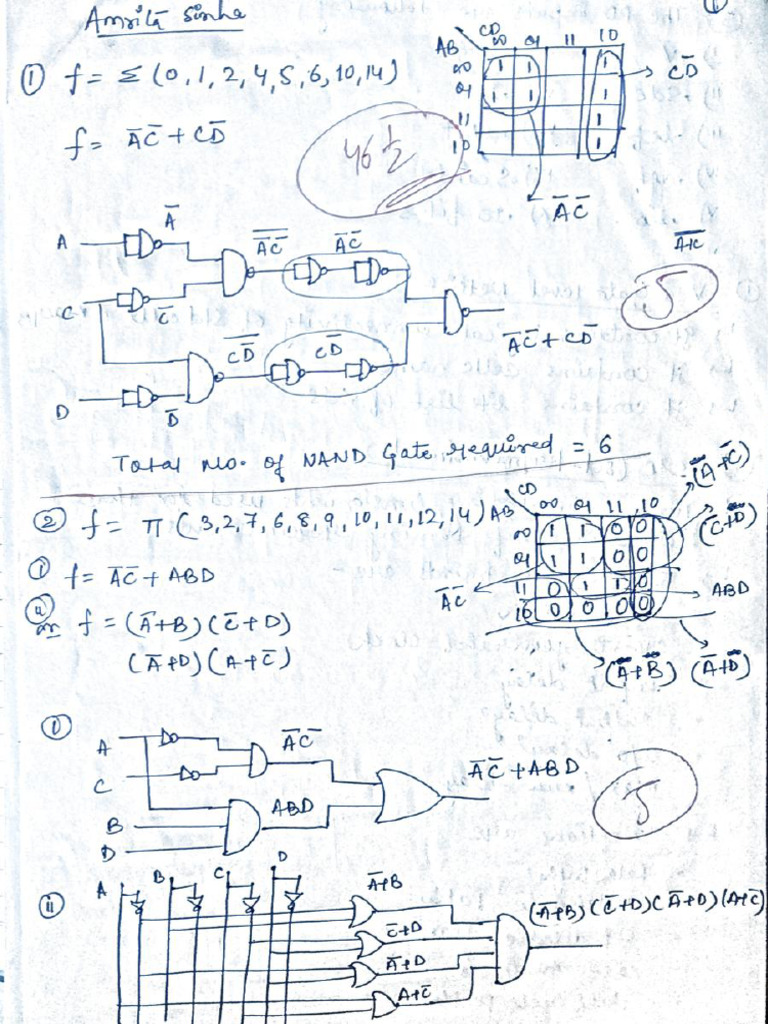 Amrita Sinha
① f = Σ (0, 1, 2, 4, 5, 6, 10, 14)
f = A̅C̅ + CD̅
46 1/2
AB CD 00 01 11 10
00 1 1 1
01 1 1 1
11 1
10 1
CD̅
A̅C̅
5
A A̅
C C̅
D D̅
A̅C̅ A̅C̅
CD̅ CD̅
A̅C̅ + CD̅
Total No. of NAND Gate required = 6
② f = π (3, 2, 7, 6, 8, 9, 10, 11, 12, 14)
① f = A̅C̅ + ABD
② f = (A̅+B) (C̅+D)
(A̅+D) (A+C̅)
AB CD 00 01 11 10
00 1 1 0 0
01 1 1 0 0
11 0 1 1 0
10 0 0 0 0
(A+C̅)
(C̅+D)
A̅C̅
ABD
(A̅+B) (A̅+D)
①
A
C
B
D
A̅C̅
ABD
A̅C̅ + ABD
5
ⅱ
A B C D
A̅+B
C̅+D
A̅+D
A+C̅
(A̅+B) (C̅+D) (A̅+D) (A+C̅)